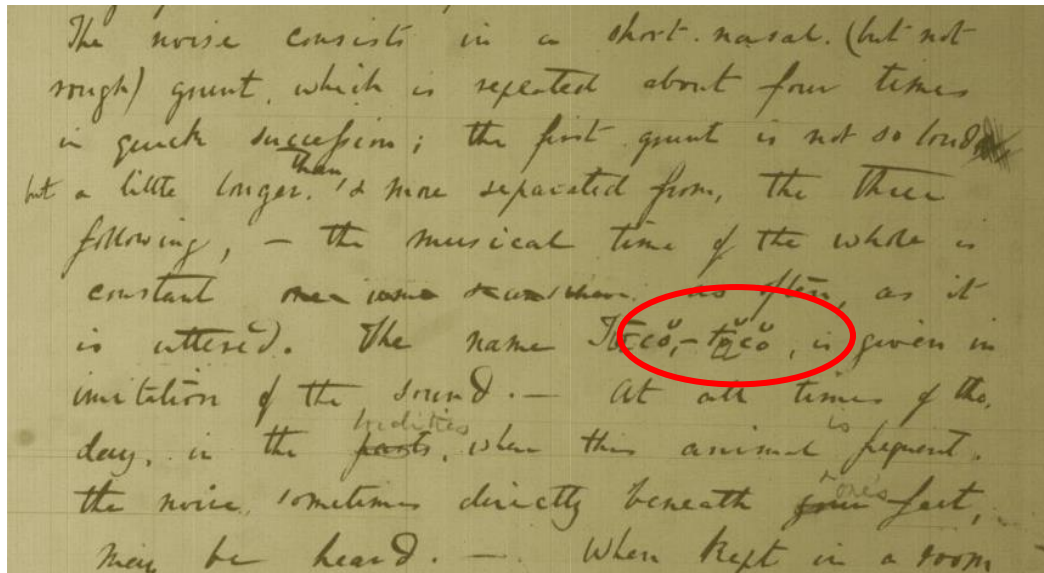 The noise consists in a short. nasal. (but not
rough) grunt, which is repeated about four times
in quick succession; the first grunt is not so loud
but a little longer, than & more separated from, the three
following, — the musical time of the whole is
constant as often, as it
is uttered. The name Tŭcŏ, – tŭcŏ, is given in
imitation of the sound. — At all times of the
day, in the parts, localities when this animal is frequent.
the noise, sometimes directly beneath your one's feet,
may be heard. — When kept in a room